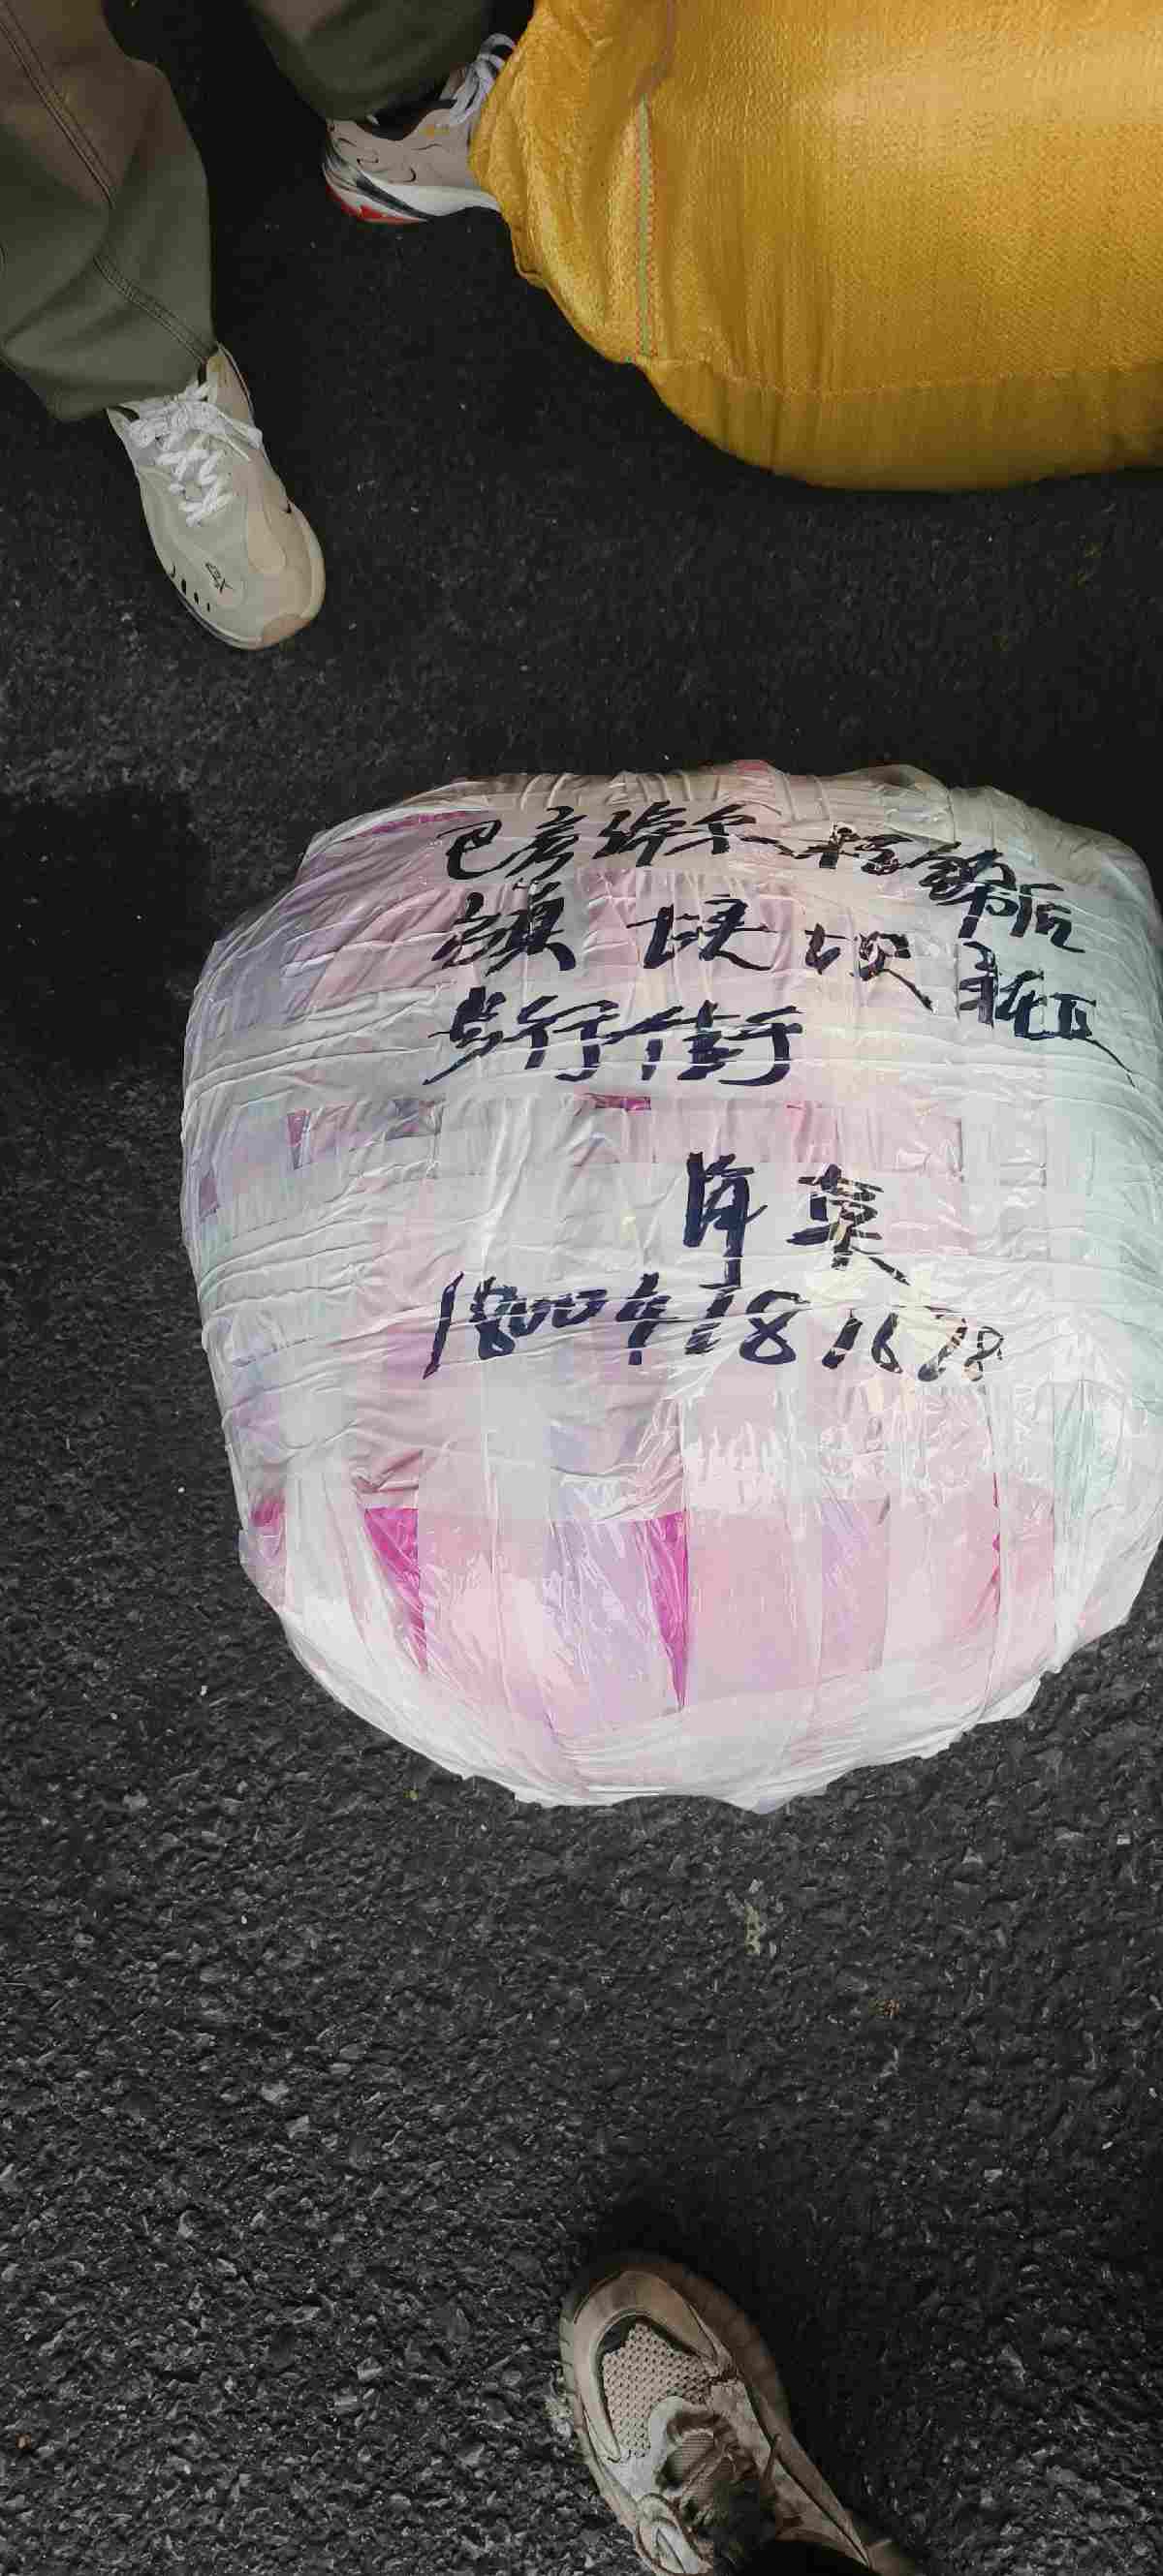 巴彦淖尔 杭锦后
旗 陕坝 租
步行街
海 英
18004181678